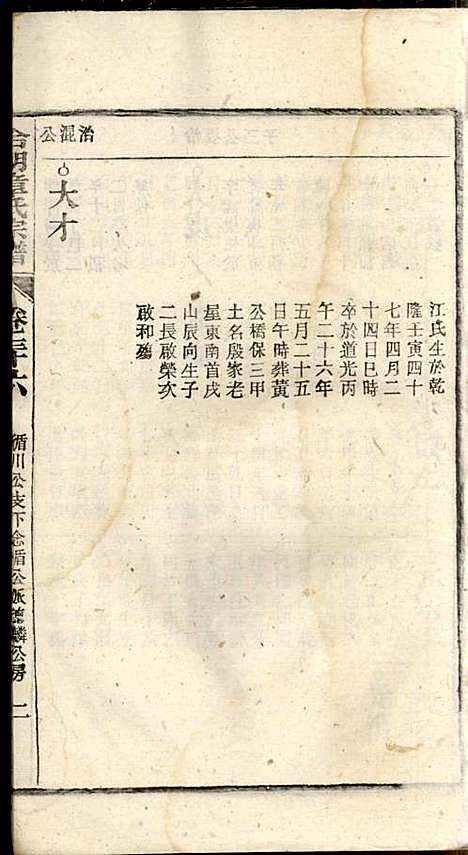 江氏生於乾
隆壬寅四十
七年四月二
十四日巳時
卒於道光丙
午二十六年
五月二十五
日午時葬黃
公橋保三甲
土名殷家老
星東南首戌
山辰向生子
二長啟榮次
啟和殤
治混公
大才
章氏宗譜
卷三十六
循川公支下念循公派德麟公房
二